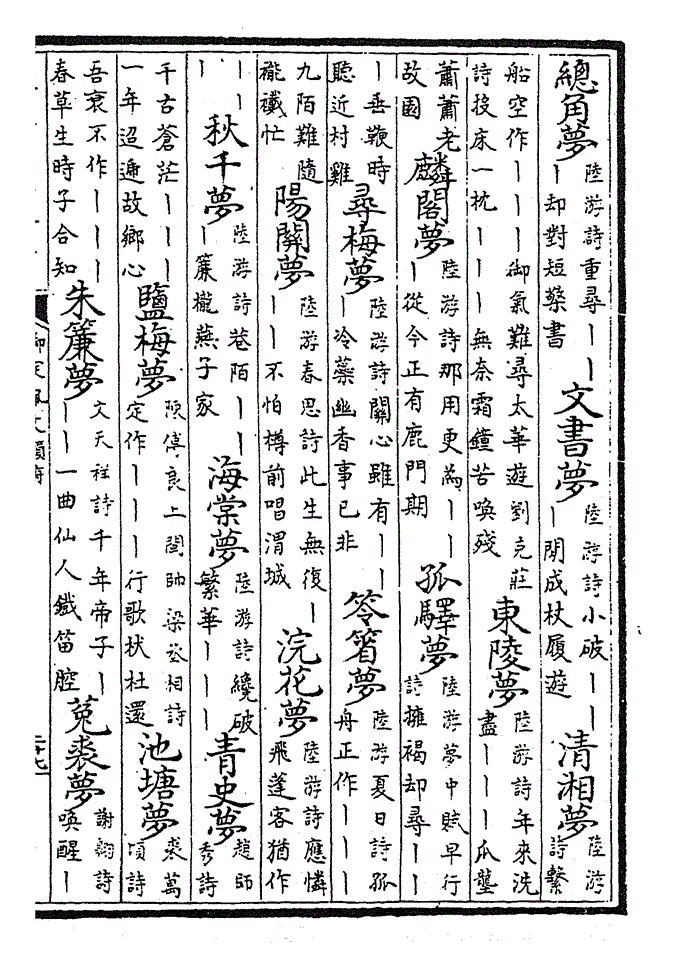 總角夢陸游詩重尋丨丨丨却對短檠書 文書夢陸游詩小破丨丨丨閒成杖履遊 清湘夢陸游詩繫
船空作丨丨丨御氣難尋太華遊劉克莊詩投床一枕丨丨丨無奈霜鐘苦喚殘 東陵夢陸游詩年來洗盡丨丨丨瓜壟
蕭蕭老故園 麟閣夢陸游詩那用更為丨丨丨從今正有鹿門期 孤驛夢陸游夢中賦早行詩擁褐却尋丨丨
丨垂鞭時聽近村雞 尋梅夢陸游詩關心雖有丨丨丨冷蘂幽香事已非 笭箵夢陸游夏日詩孤舟正作丨丨丨
九陌難隨褦襶忙 陽關夢陸游春思詩此生無復丨丨丨不怕樽前唱渭城 浣花夢陸游詩應憐飛蓬客猶作
丨丨丨 秋千夢陸游詩巷陌丨丨丨簾櫳燕子家 海棠夢陸游詩纔破繁華丨丨丨 青史夢趙師秀詩
千古蒼茫丨丨丨一年迢遞故鄉心 鹽梅夢陳傅良上閫帥梁丞相詩定作丨丨丨行歌杕杜還 池塘夢裘萬頃詩
吾衰不作丨丨丨春草生時子合知 朱簾夢文天祥詩千年帝子丨丨丨一曲仙人鐵笛腔 菟裘夢謝翱詩喚醒丨
御定佩文韻府